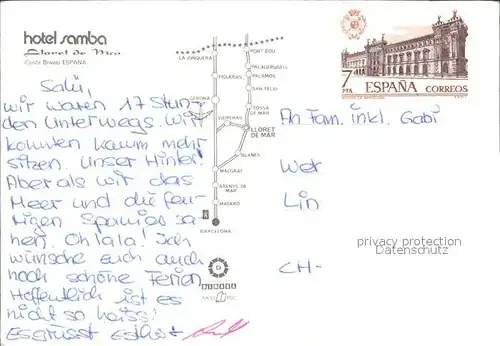 hotel samba
Lloret de Mar
(Costa Brava) ESPAÑA
Salü,
wir waren 17 Stun-
den unterwegs. Wir
konnten kaum mehr
sitzen. Unser Hinter!
Aber als wir das
Meer und die feu-
rigen Spanier sa-
hen. Oh lala! Ich
wünsche euch auch
noch schöne Ferien
Hoffentlich ist es
nicht so heiss!
Es grüsst Esther
PORT BOU
LA JUNQUERA
PALAFRUGELL
FIGUERAS
PALAMOS
SAN FELIU
GERONA
TOSSA
DE MAR
VIDRERAS
LLORET
DE MAR
BLANES
MALGRAT
ARENYS DE
MAR
MATARÓ
BARCELONA
7
PTA
ESPAÑA CORREOS
An Fam. inkl. Gabi
Wer
Lin
CH-
privacy protection
Datenschutz